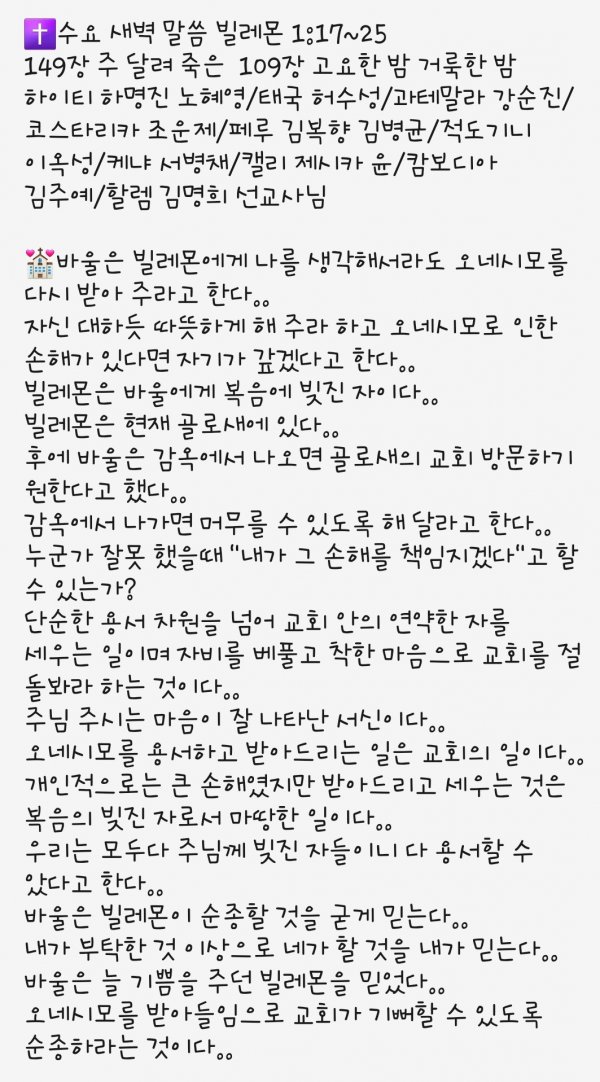 ✝️수요 새벽 말씀 빌레몬 1:17~25
149장 주 달려 죽은  109장 고요한 밤 거룩한 밤
하이티 하명진 노혜영/태국 허수성/과테말라 강순진/
코스타리카 조운제/페루 김복향 김병균/적도기니
이옥성/케냐 서병채/캘리 제시카 윤/캄보디아
김주예/할렘 김명희 선교사님
💒바울은 빌레몬에게 나를 생각해서라도 오네시모를
다시 받아 주라고 한다..
자신 대하듯 따뜻하게 해 주라 하고 오네시모로 인한
손해가 있다면 자기가 갚겠다고 한다..
빌레몬은 바울에게 복음에 빚진 자이다..
빌레몬은 현재 골로새에 있다..
후에 바울은 감옥에서 나오면 골로새의 교회 방문하기
원한다고 했다..
감옥에서 나가면 머무를 수 있도록 해 달라고 한다..
누군가 잘못 했을때 "내가 그 손해를 책임지겠다"고 할
수 있는가?
단순한 용서 차원을 넘어 교회 안의 연약한 자를
세우는 일이며 자비를 베풀고 착한 마음으로 교회를 절
돌봐라 하는 것이다..
주님 주시는 마음이 잘 나타난 서신이다..
오네시모를 용서하고 받아드리는 일은 교회의 일이다..
개인적으로는 큰 손해였지만 받아드리고 세우는 것은
복음의 빚진 자로서 마땅한 일이다..
우리는 모두다 주님께 빚진 자들이니 다 용서할 수
았다고 한다..
바울은 빌레몬이 순종할 것을 굳게 믿는다..
내가 부탁한 것 이상으로 네가 할 것을 내가 믿는다..
바울은 늘 기쁨을 주던 빌레몬을 믿었다..
오네시모를 받아들임으로 교회가 기뻐할 수 있도록
순종하라는 것이다..